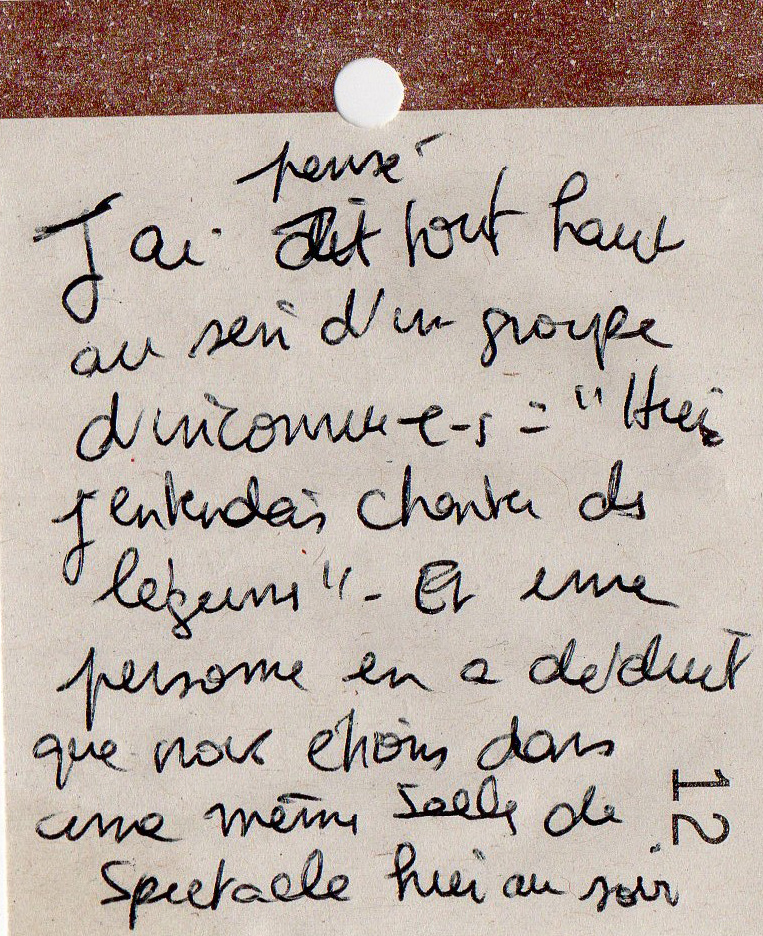 pensé
J'ai dit tout haut
au sein d'un groupe
d'inconnu-e-s = "Hier
j'entendais chanter des
légumes". Et une
personne en a déduit
que nous étions dans
une même salle de
spectacle hier au soir
12